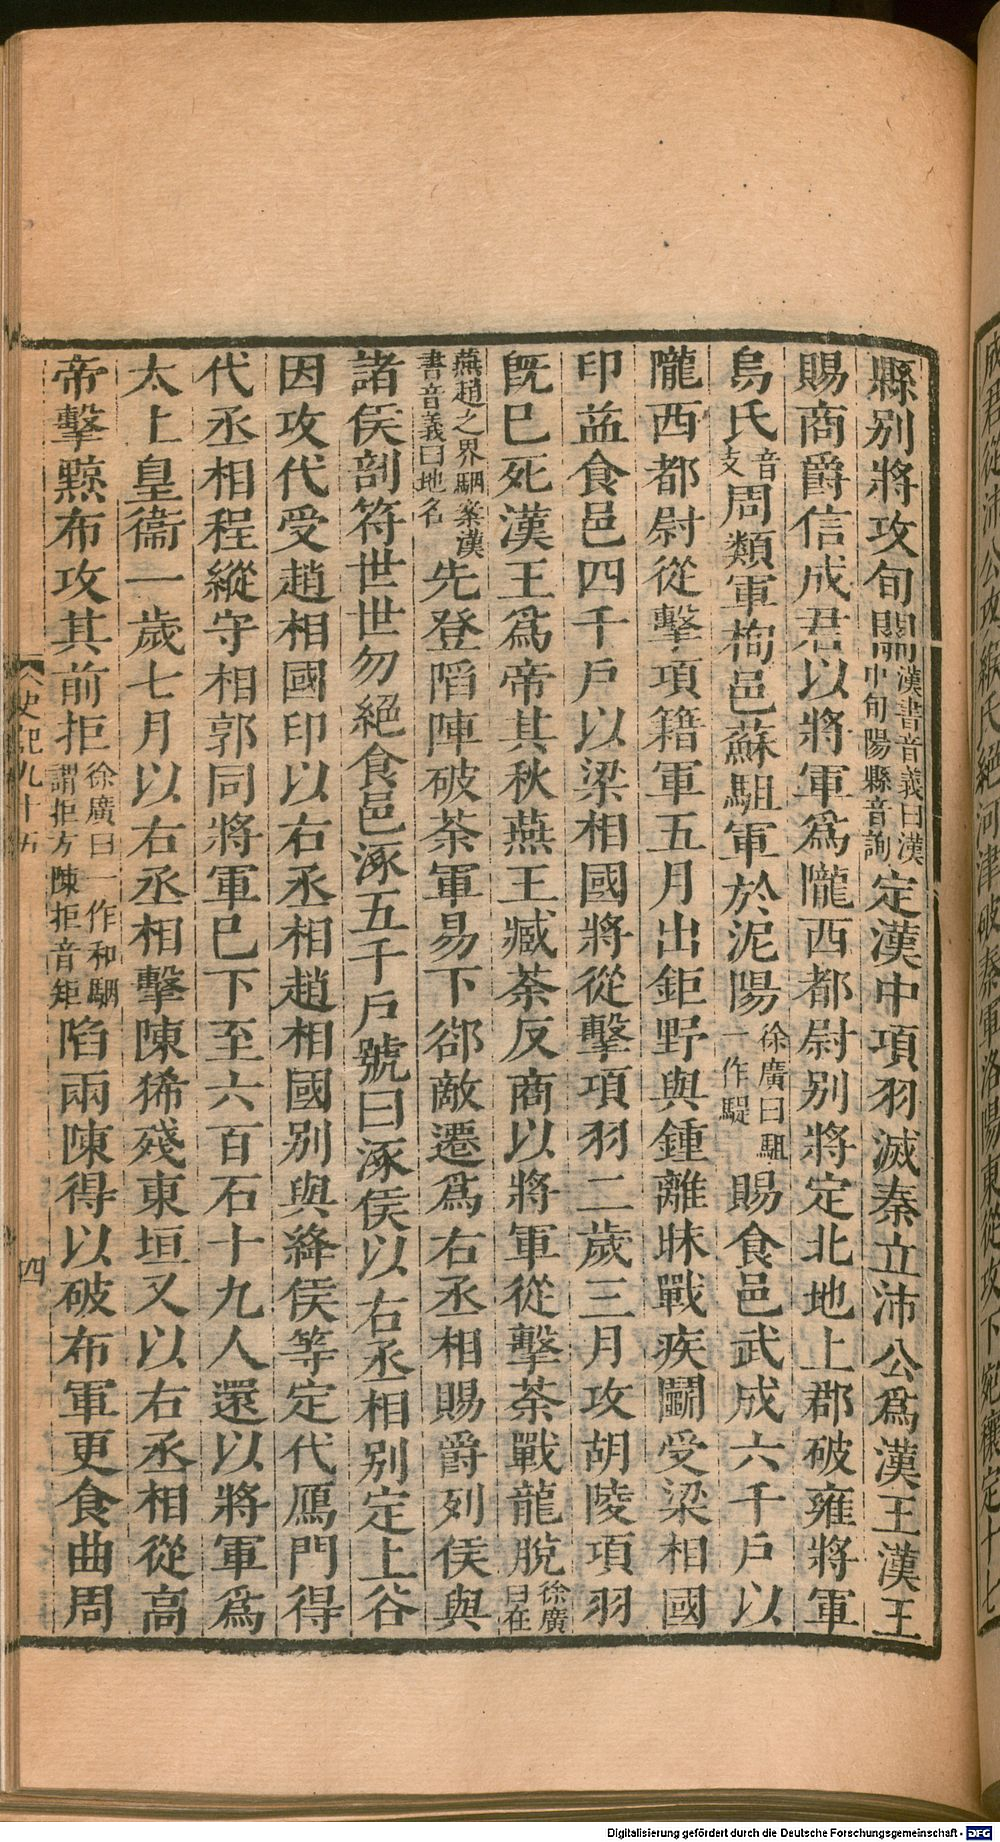 縣別將攻旬關漢書音義曰漢中旬陽縣音詢定漢中項羽滅秦立沛公爲漢王漢王
賜商爵信成君以將軍爲隴西都尉別將定北地上郡破雍將軍
烏氏音支周類軍栒邑蘇駔軍於泥陽徐廣曰駔一作騠賜食邑武成六千戶以
隴西都尉從擊項籍軍五月出鉅野與鍾離眛戰疾鬬受梁相國
印益食邑四千戶以梁相國將從擊項羽二歲三月攻胡陵項羽
旣巳死漢王爲帝其秋燕王臧荼反商以將軍從擊荼戰龍脫徐廣曰在
燕趙之界駰案漢書音義曰地名先登陷陣破荼軍易下郤敵遷爲右丞相賜爵列侯與
諸侯剖符世世勿絕食邑涿五千戶號曰涿侯以右丞相別定上谷
因攻代受趙相國印以右丞相趙相國別與絳侯等定代鴈門得
代丞相程縱守相郭同將軍巳下至六百石十九人還以將軍爲
太上皇衞一歲七月以右丞相擊陳狶殘東垣又以右丞相從高
帝擊黥布攻其前拒徐廣曰一作和駰謂拒方陳拒音矩陷兩陳得以破布軍更食曲周
史記九十五
四
成君從沛公攻緱氏絕河津破秦軍洛陽東從攻下宛穰定十七
Digitalisierung gefördert durch die Deutsche Forschungsgemeinschaft - DFG